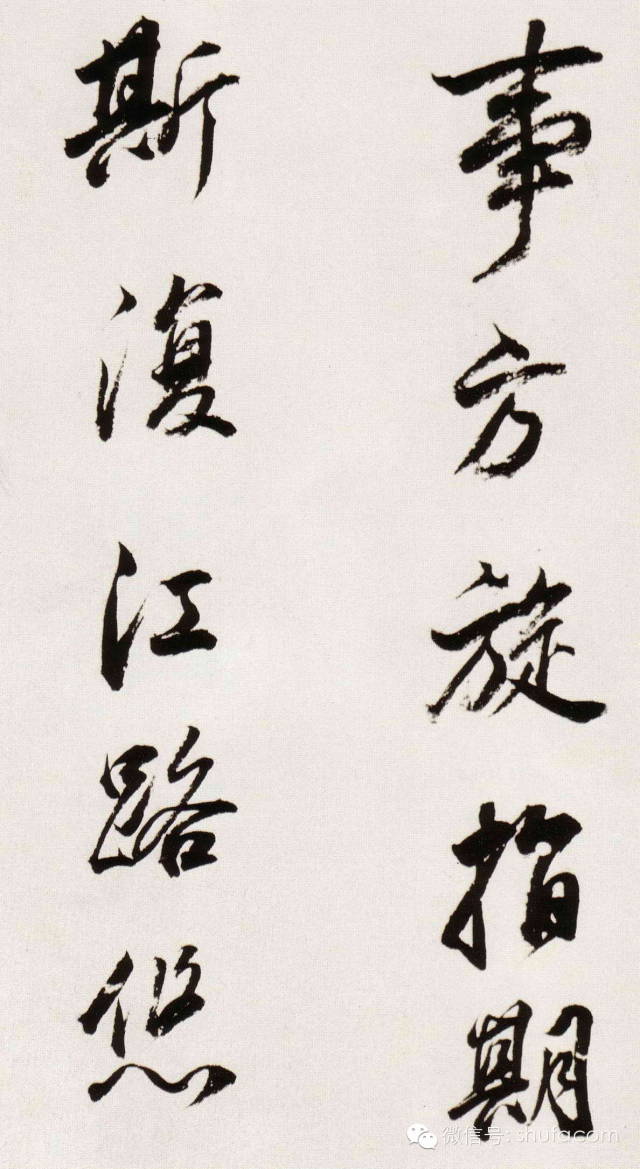 事方旋指期
斯復江路悠
微信号: shufacom